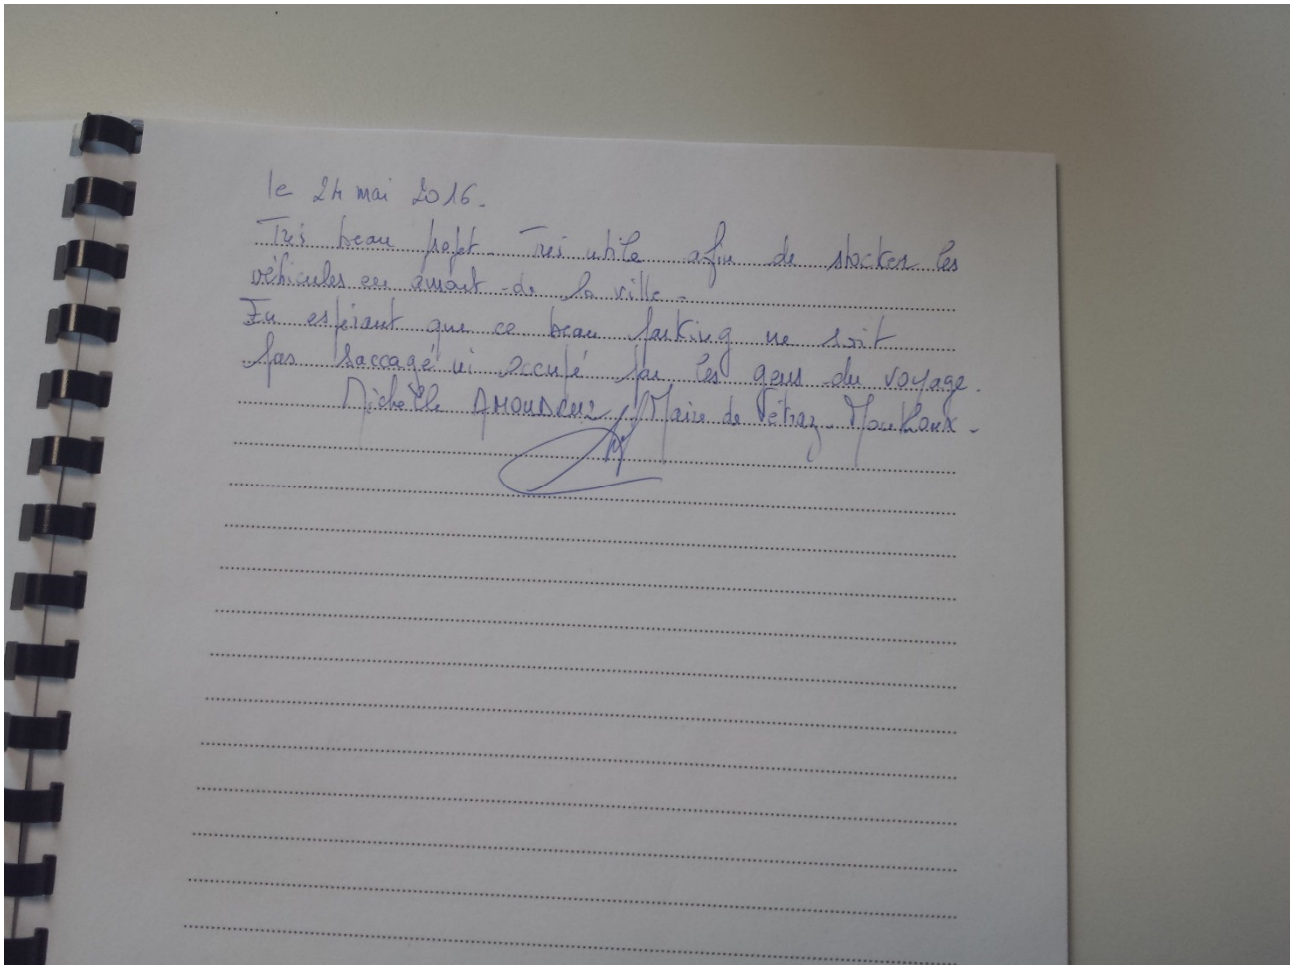 le 24 mai 2016.
Très beau projet. Très utile afin de stocker les
véhicules en amont de la ville.
En espérant que ce beau parking ne soit
pas saccagé ni occupé par les gens du voyage.
Michelle AMOUDRUZ, Maire de Vétraz-Monthoux.